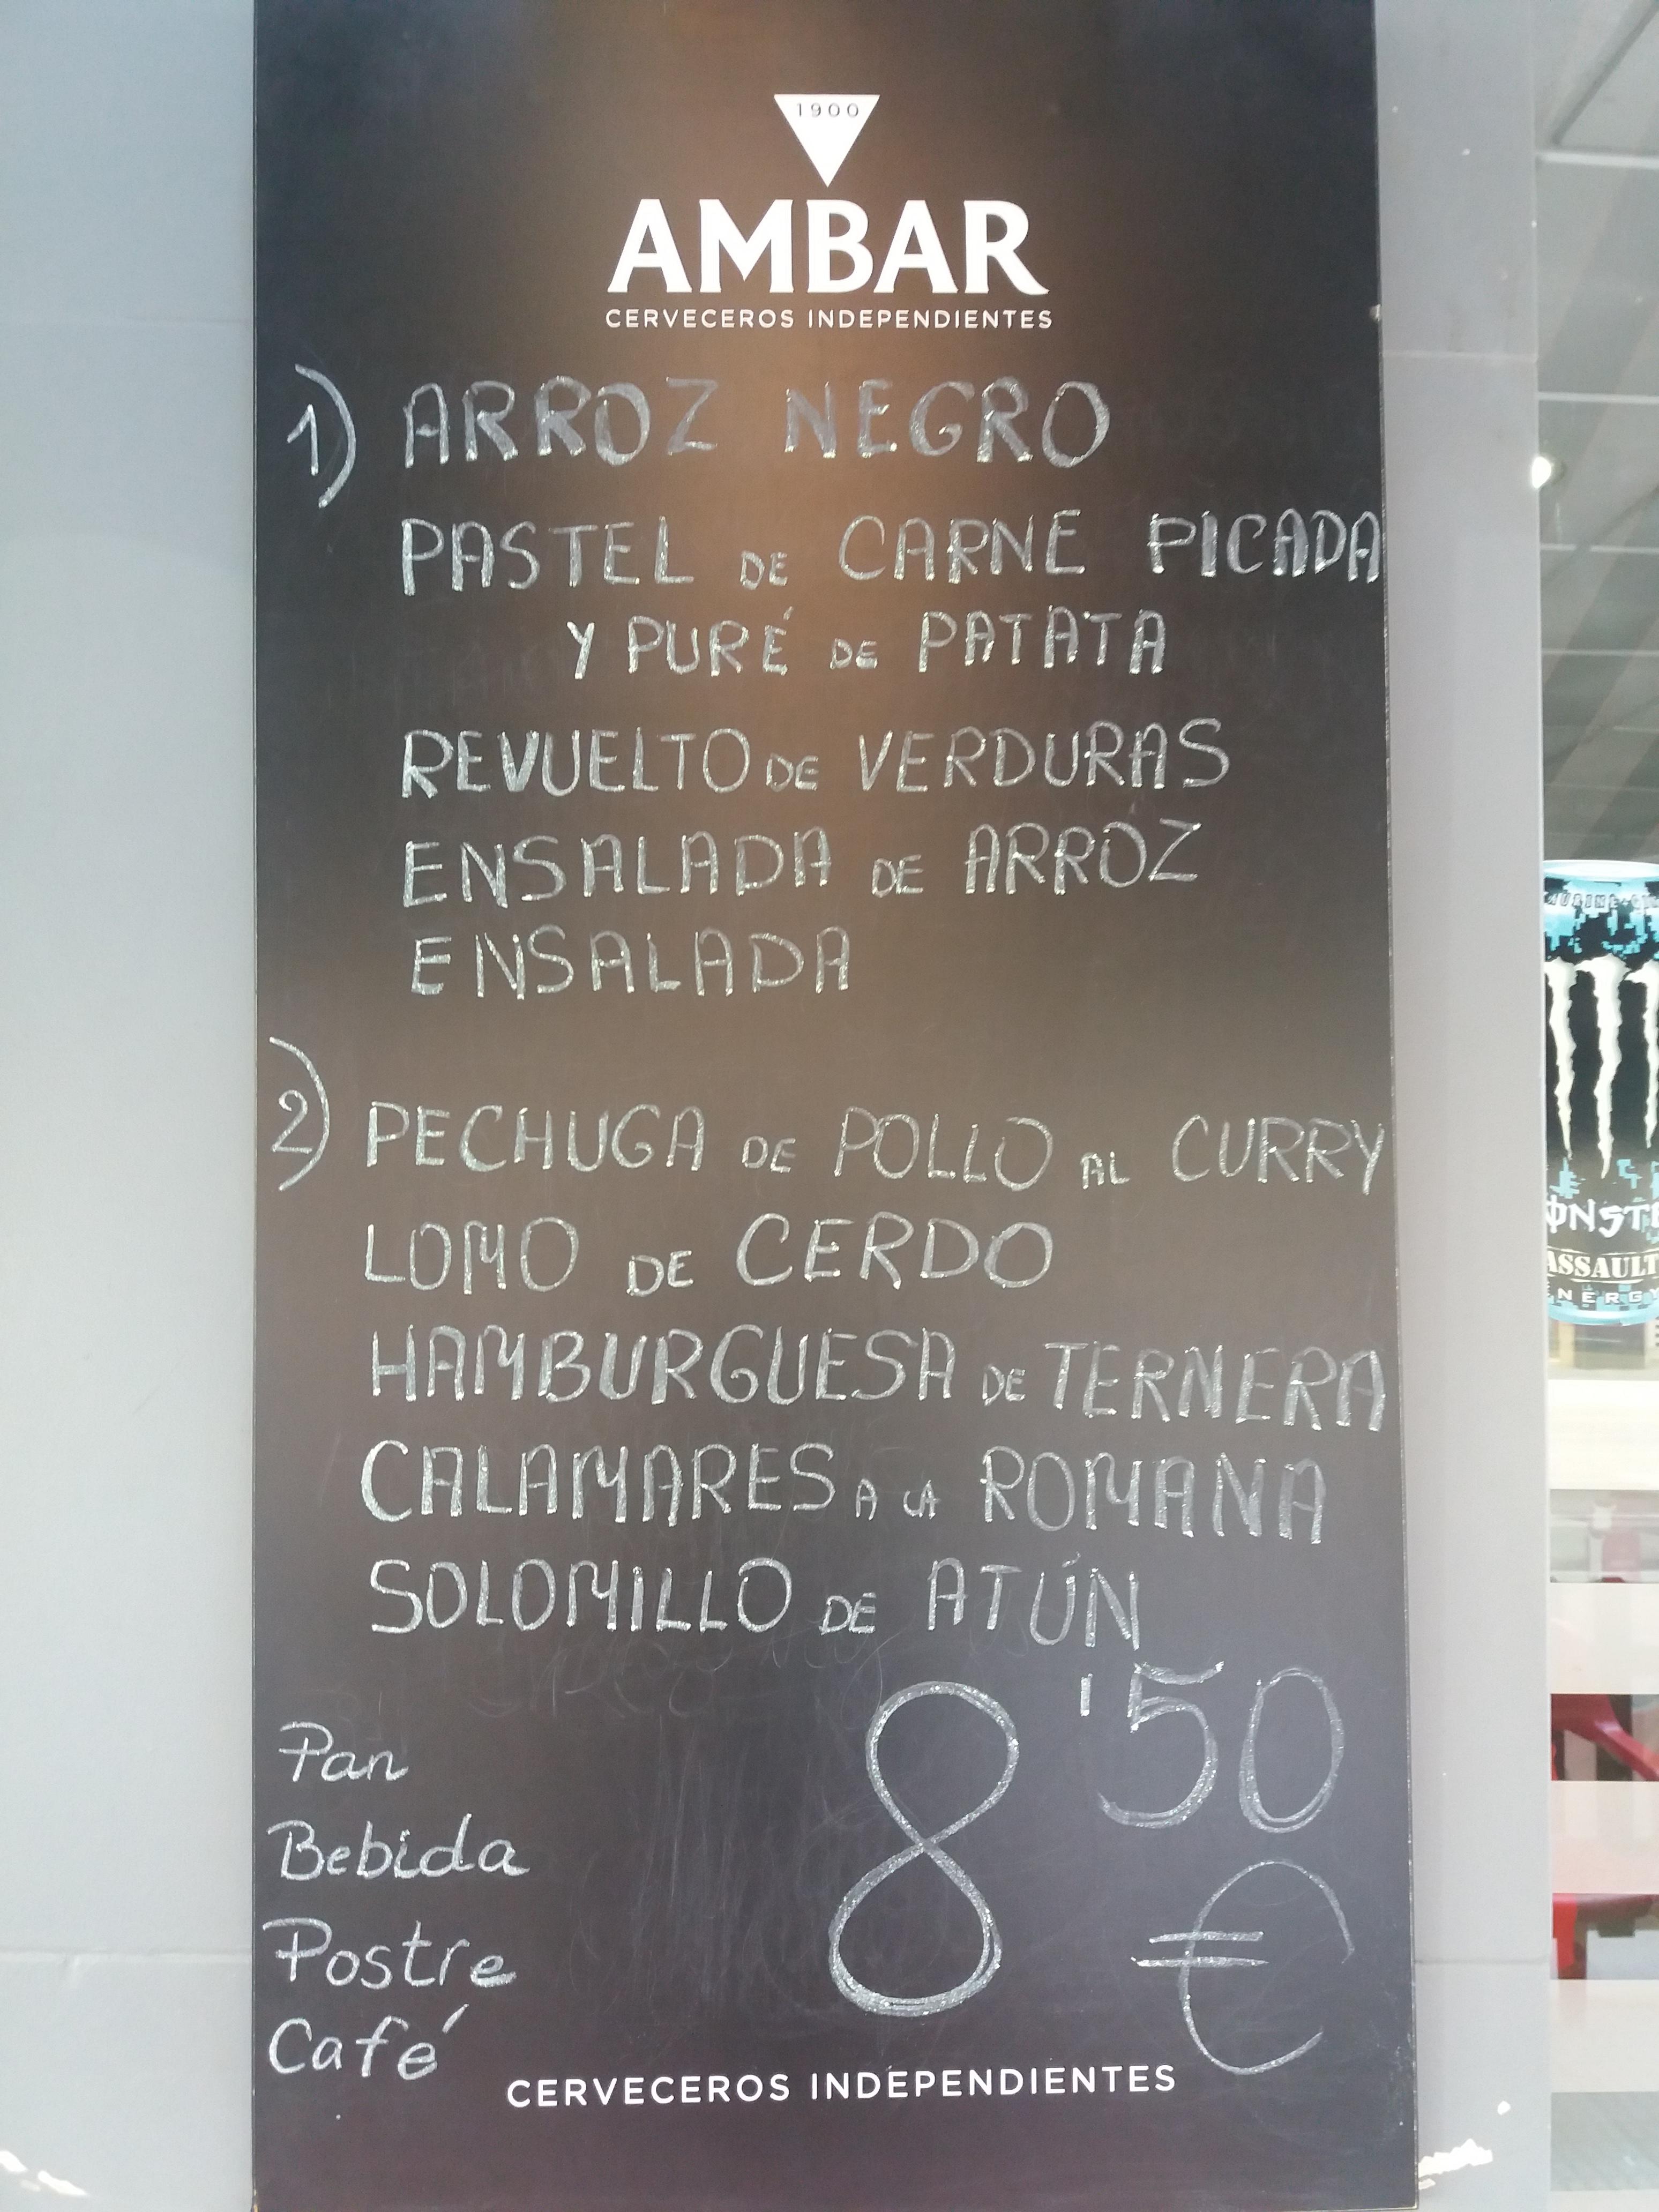 1900
AMBAR
CERVECEROS INDEPENDIENTES
1) ARROZ NEGRO
PASTEL DE CARNE PICADA
Y PURÉ DE PATATA
REVUELTO DE VERDURAS
ENSALADA DE ARROZ
ENSALADA
2) PECHUGA DE POLLO AL CURRY
LOMO DE CERDO
HAMBURGUESA DE TERNERA
CALAMARES A LA ROMANA
SOLOMILLO DE ATÚN
8'50
€
Pan
Bebida
Postre
Café
CERVECEROS INDEPENDIENTES
ASSAULT
ENERGY